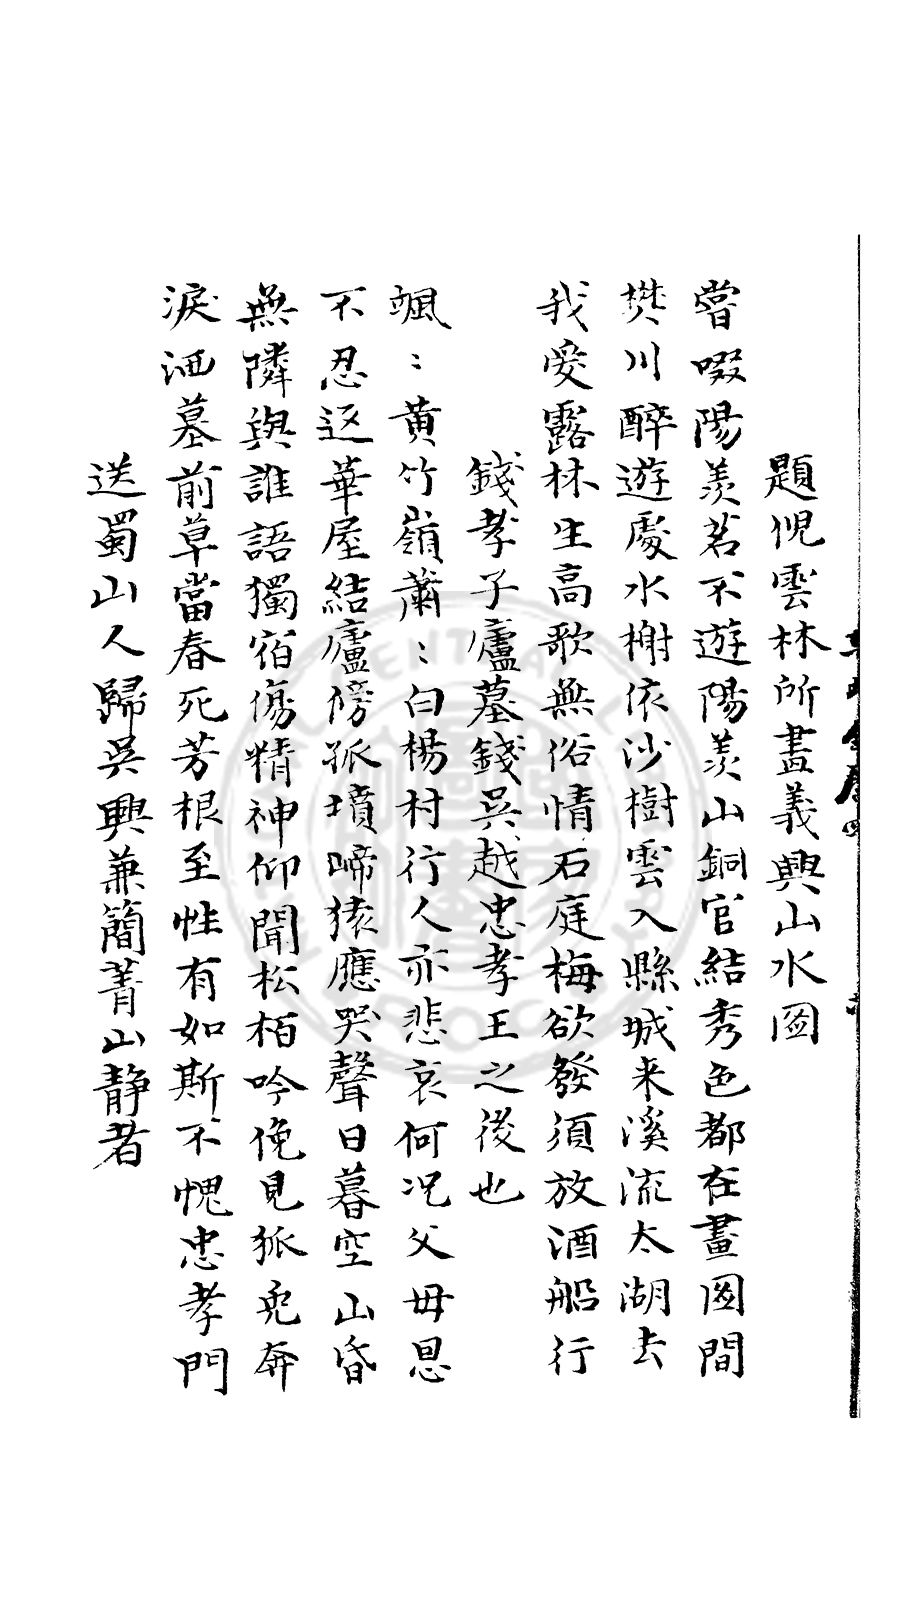 題倪雲林所畫義興山水圖
嘗啜陽羨茗不遊陽羨山銅官結秀色都在畫圖間
樊川醉遊處水榭依沙樹雲入縣城來溪流太湖去
我愛露林生高歌無俗情石庭梅欲發須放酒船行
錢孝子廬墓錢吳越忠孝王之後也
颯〻黄竹嶺蕭〻白楊村行人亦悲哀何况父母恩
不忍返華屋結廬傍孤墳啼猿應哭聲日暮空山昏
無隣與誰語獨宿傷精神仰聞松栢吟俛見狐兎奔
淚洒墓前草當春死芳根至性有如斯不愧忠孝門
送蜀山人歸吳興兼簡菁山靜者